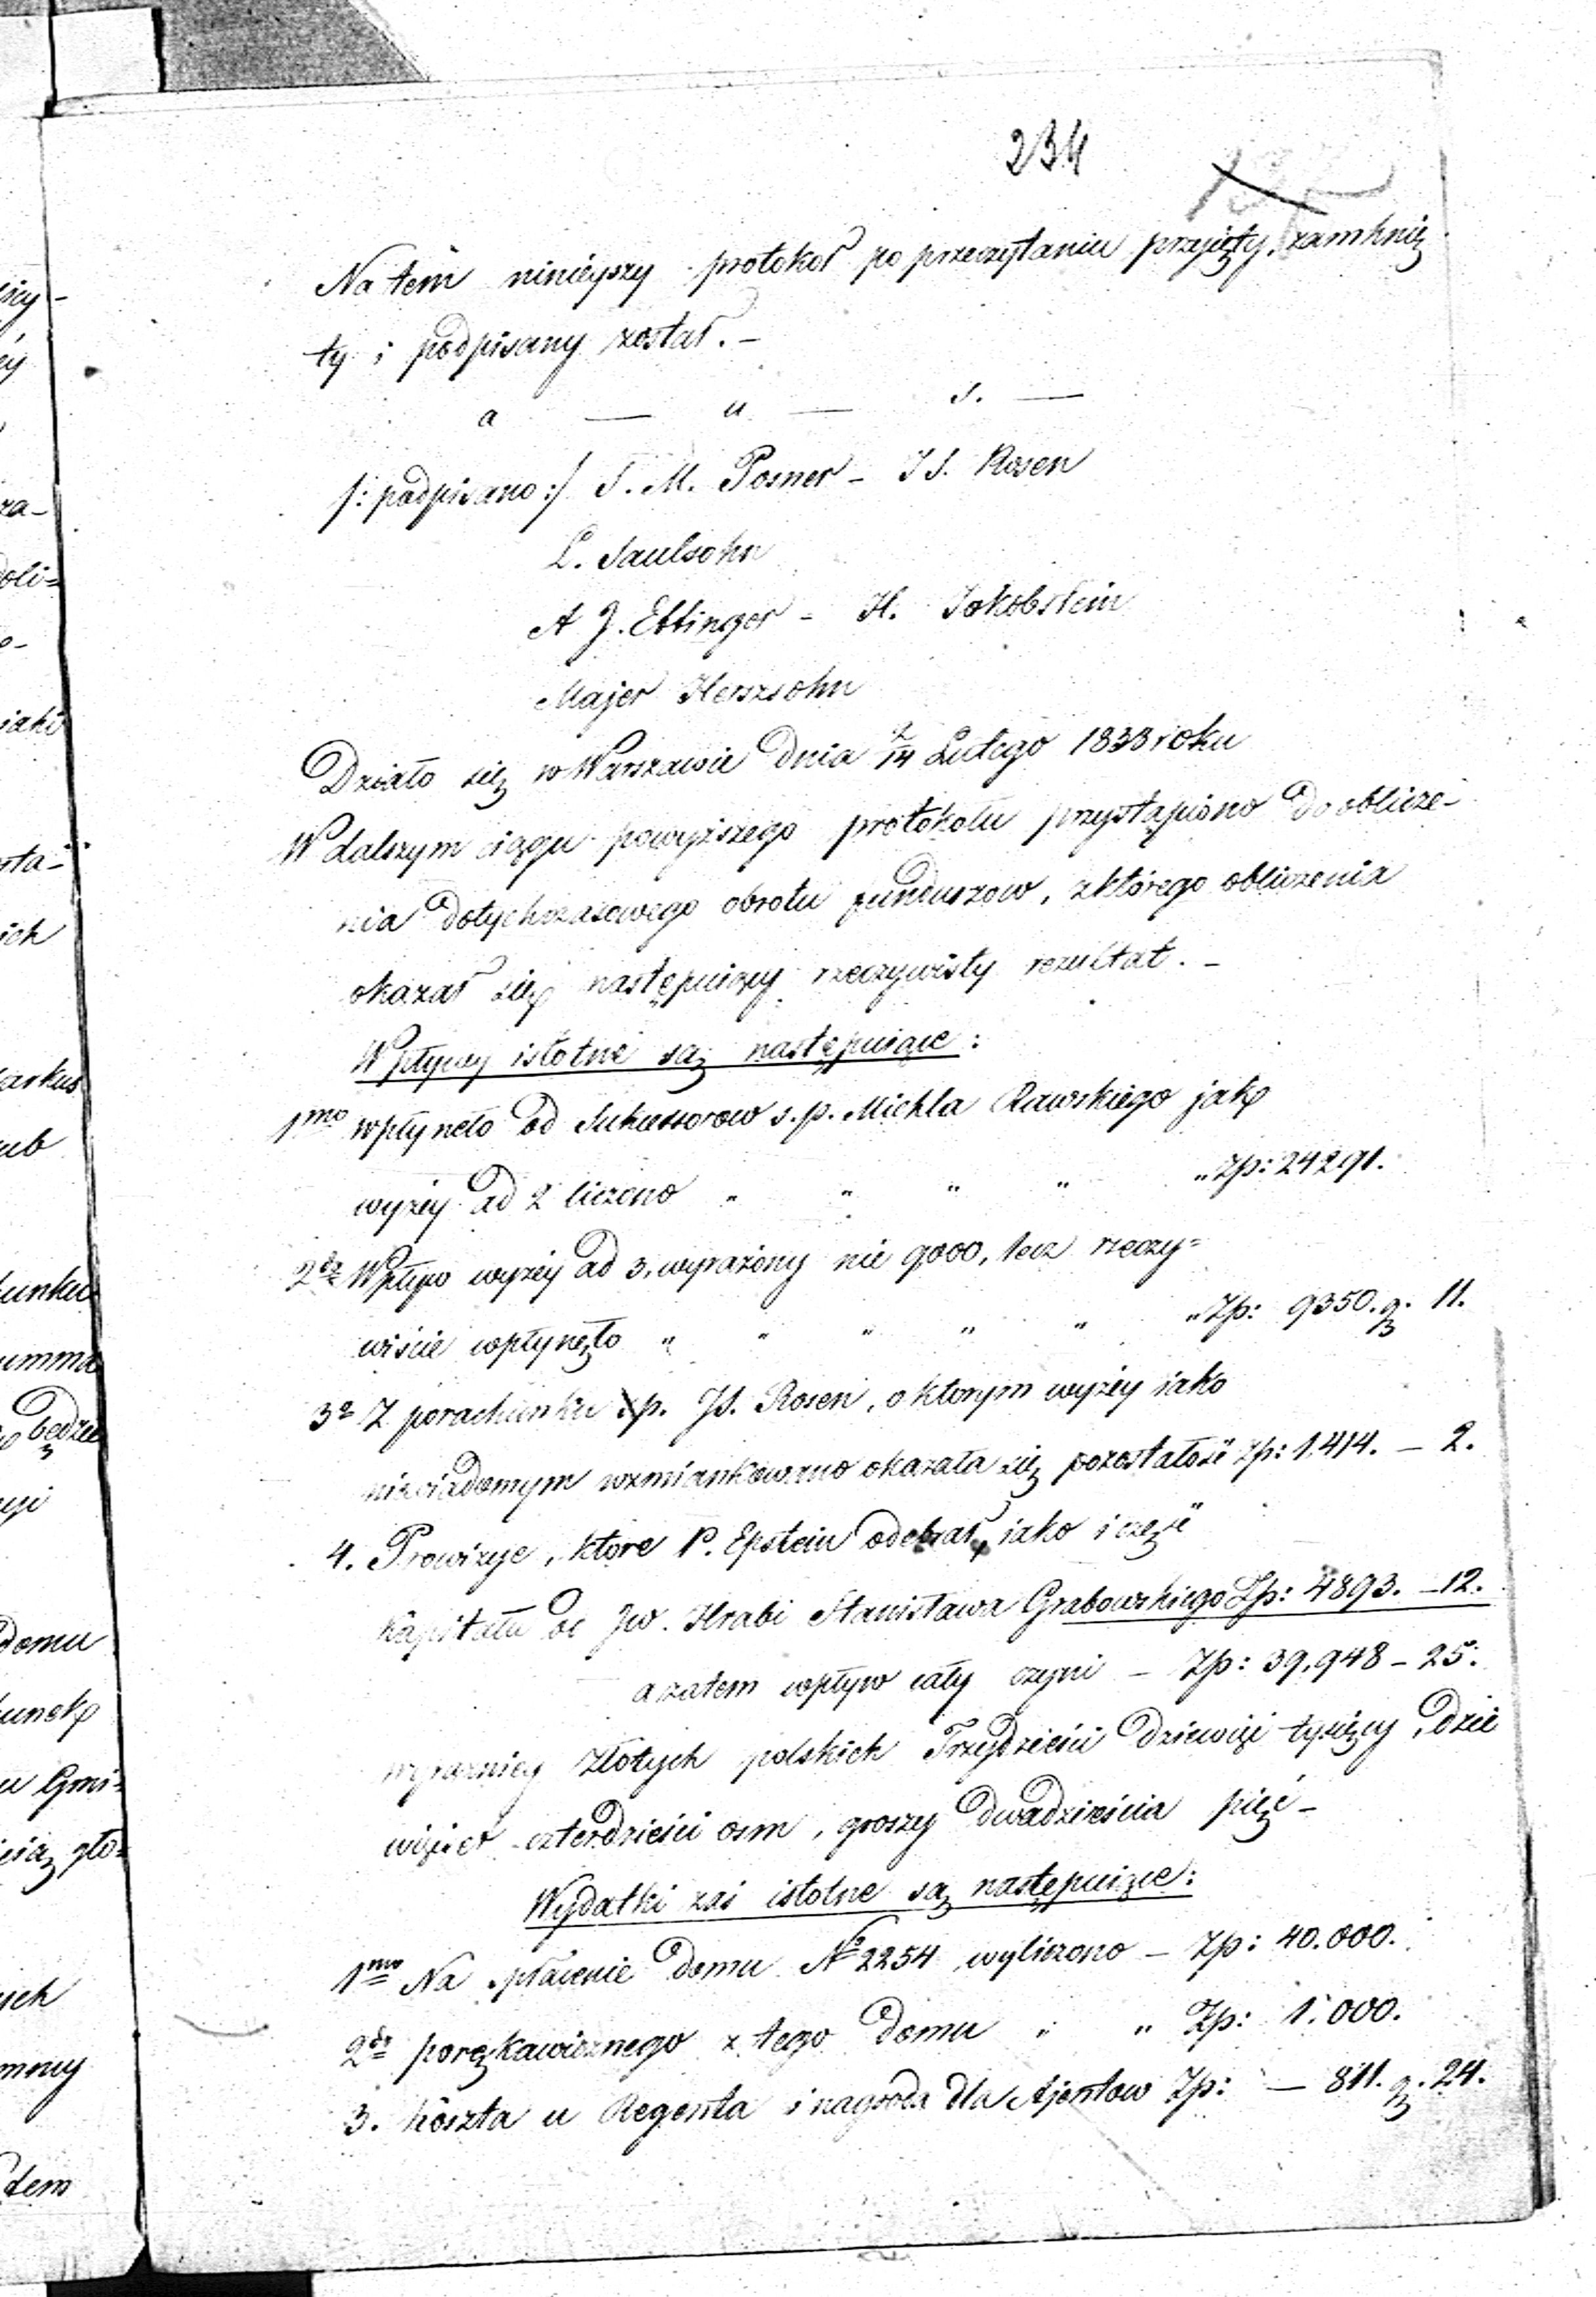 234
Na tem ninieyszy protokoł po przeczytaniu przyięty, zamknię
ty i podpisany został. –
a — u — s. —
/: podpisano :/ S. M. Posner – J S. Rosen
L. Saulsohn
A J. Ettinger – H. Jakobstein
Majer Herszsohn
Działo się w Warszawie dnia 2/14 Lutego 1838 roku
W dalszym ciągu powyższego protokołu przystąpiono do oblicze-
nia dotychczasowego obrotu funduszow, z którego obliczenia
okazał się następuiący rzeczywisty rezultat. –
Wpływy istotne są następuiące :
1mo wpłyneło od Sukcessorow s. p. Michla Rawskiego jak
wyżey ad 2 liczono " " " " " Zp: 24291.
2do Wpływ wyżey ad 3, wyrażony nie 9000, lecz rzeczy=
wiście wpłynęło " " " " " " Zp: 9350. g. 11.
3o Z porachunku p. JS. Rosen, o ktorym wyżey iako
niewiadomym wzmiankowano okazała się pozostałość Zp: 1,414. – 2.
4. Prowizye, ktore P. Epstein odebrał, iako i część
Kapitału od JW. Hrabi Stanisława Grabowskiego Zp: 4893. – 12.
a zatem wpływ cały czyni – Zp: 39,948 – 25.
wyraźniey Złotych polskich Trzydzieści dziewięć tysięcy, dzie
więćset czterdzieści osm, groszy dwadzieścia pięć –
Wydatki zaś istotne są następuiące :
1mo Na spłacenie domu No 2254 wyliczono – Zp: 40.000.
2do porękawicznego z tego domu " " Zp: 1.000.
3. Koszta u Regenta i nagroda dla Ajentow Zp: — 811. g. 24.